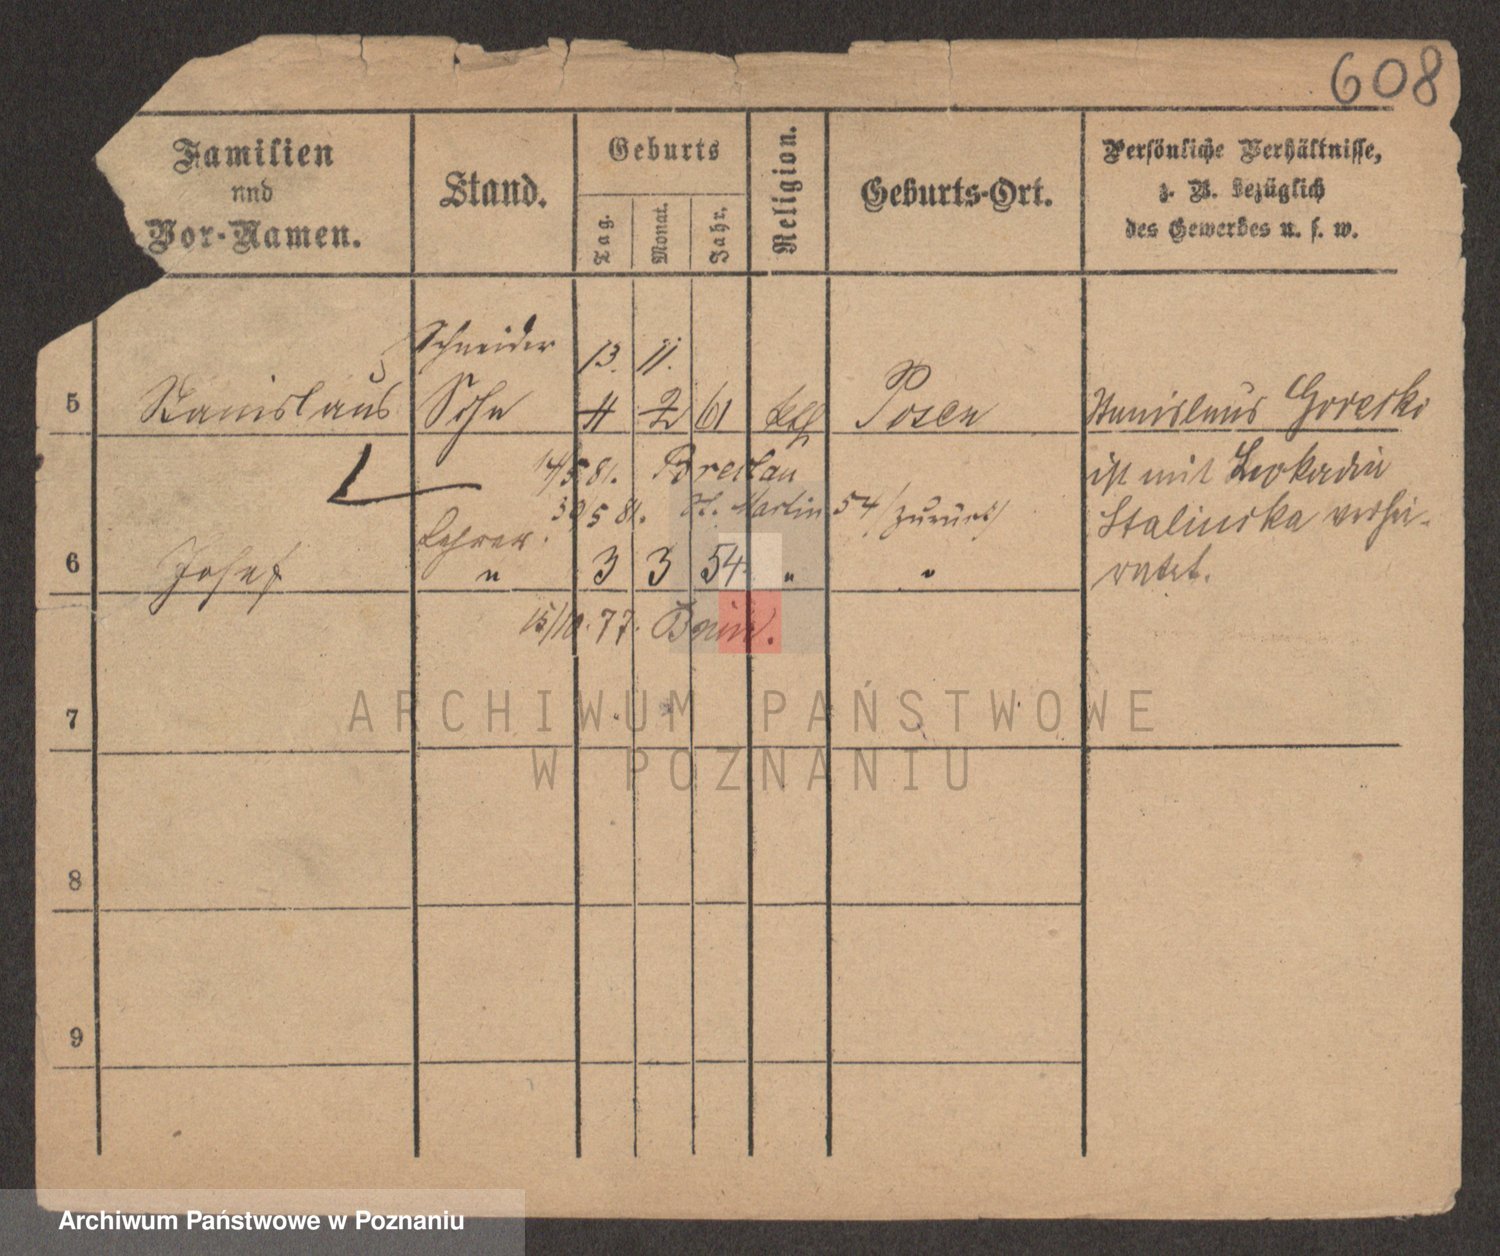 608
Familien
und
Vor-Namen.
Stand.
Geburts
Tag.
Monat.
Jahr.
Religion.
Geburts-Ort.
Persönliche Verhältnisse,
z. B. bezüglich
des Gewerbes u. s. w.
Schneider 13. 11.
5 Stanislaus Sohn 4 2 61 kth Posen
Stanislaus Gorecki
ist mit Leokadia
Stalinska verhei-
ratet.
14/5 81. Breslau
30/5 81. St. Martin 54 /zurück/
Lehrer.
6 Josef " 3 3 54. " "
15/10. 77.
7
8
9
ARCHIWUM PAŃSTWOWE
W POZNANIU
Archiwum Państwowe w Poznaniu